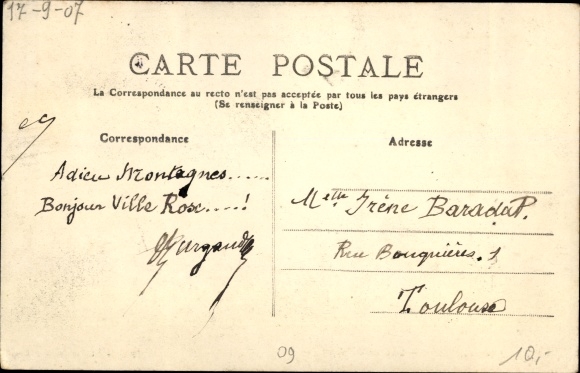 17-9-07
CARTE POSTALE
La Correspondance au recto n'est pas acceptée par tous les pays étrangers
(Se renseigner à la Poste)
Correspondance
Adieu Montagnes......
Bonjour Ville Rose.....!
Adresse
Melle Irène BaradaP.
Rue Bouquières. 1
Toulouse
09
10,-